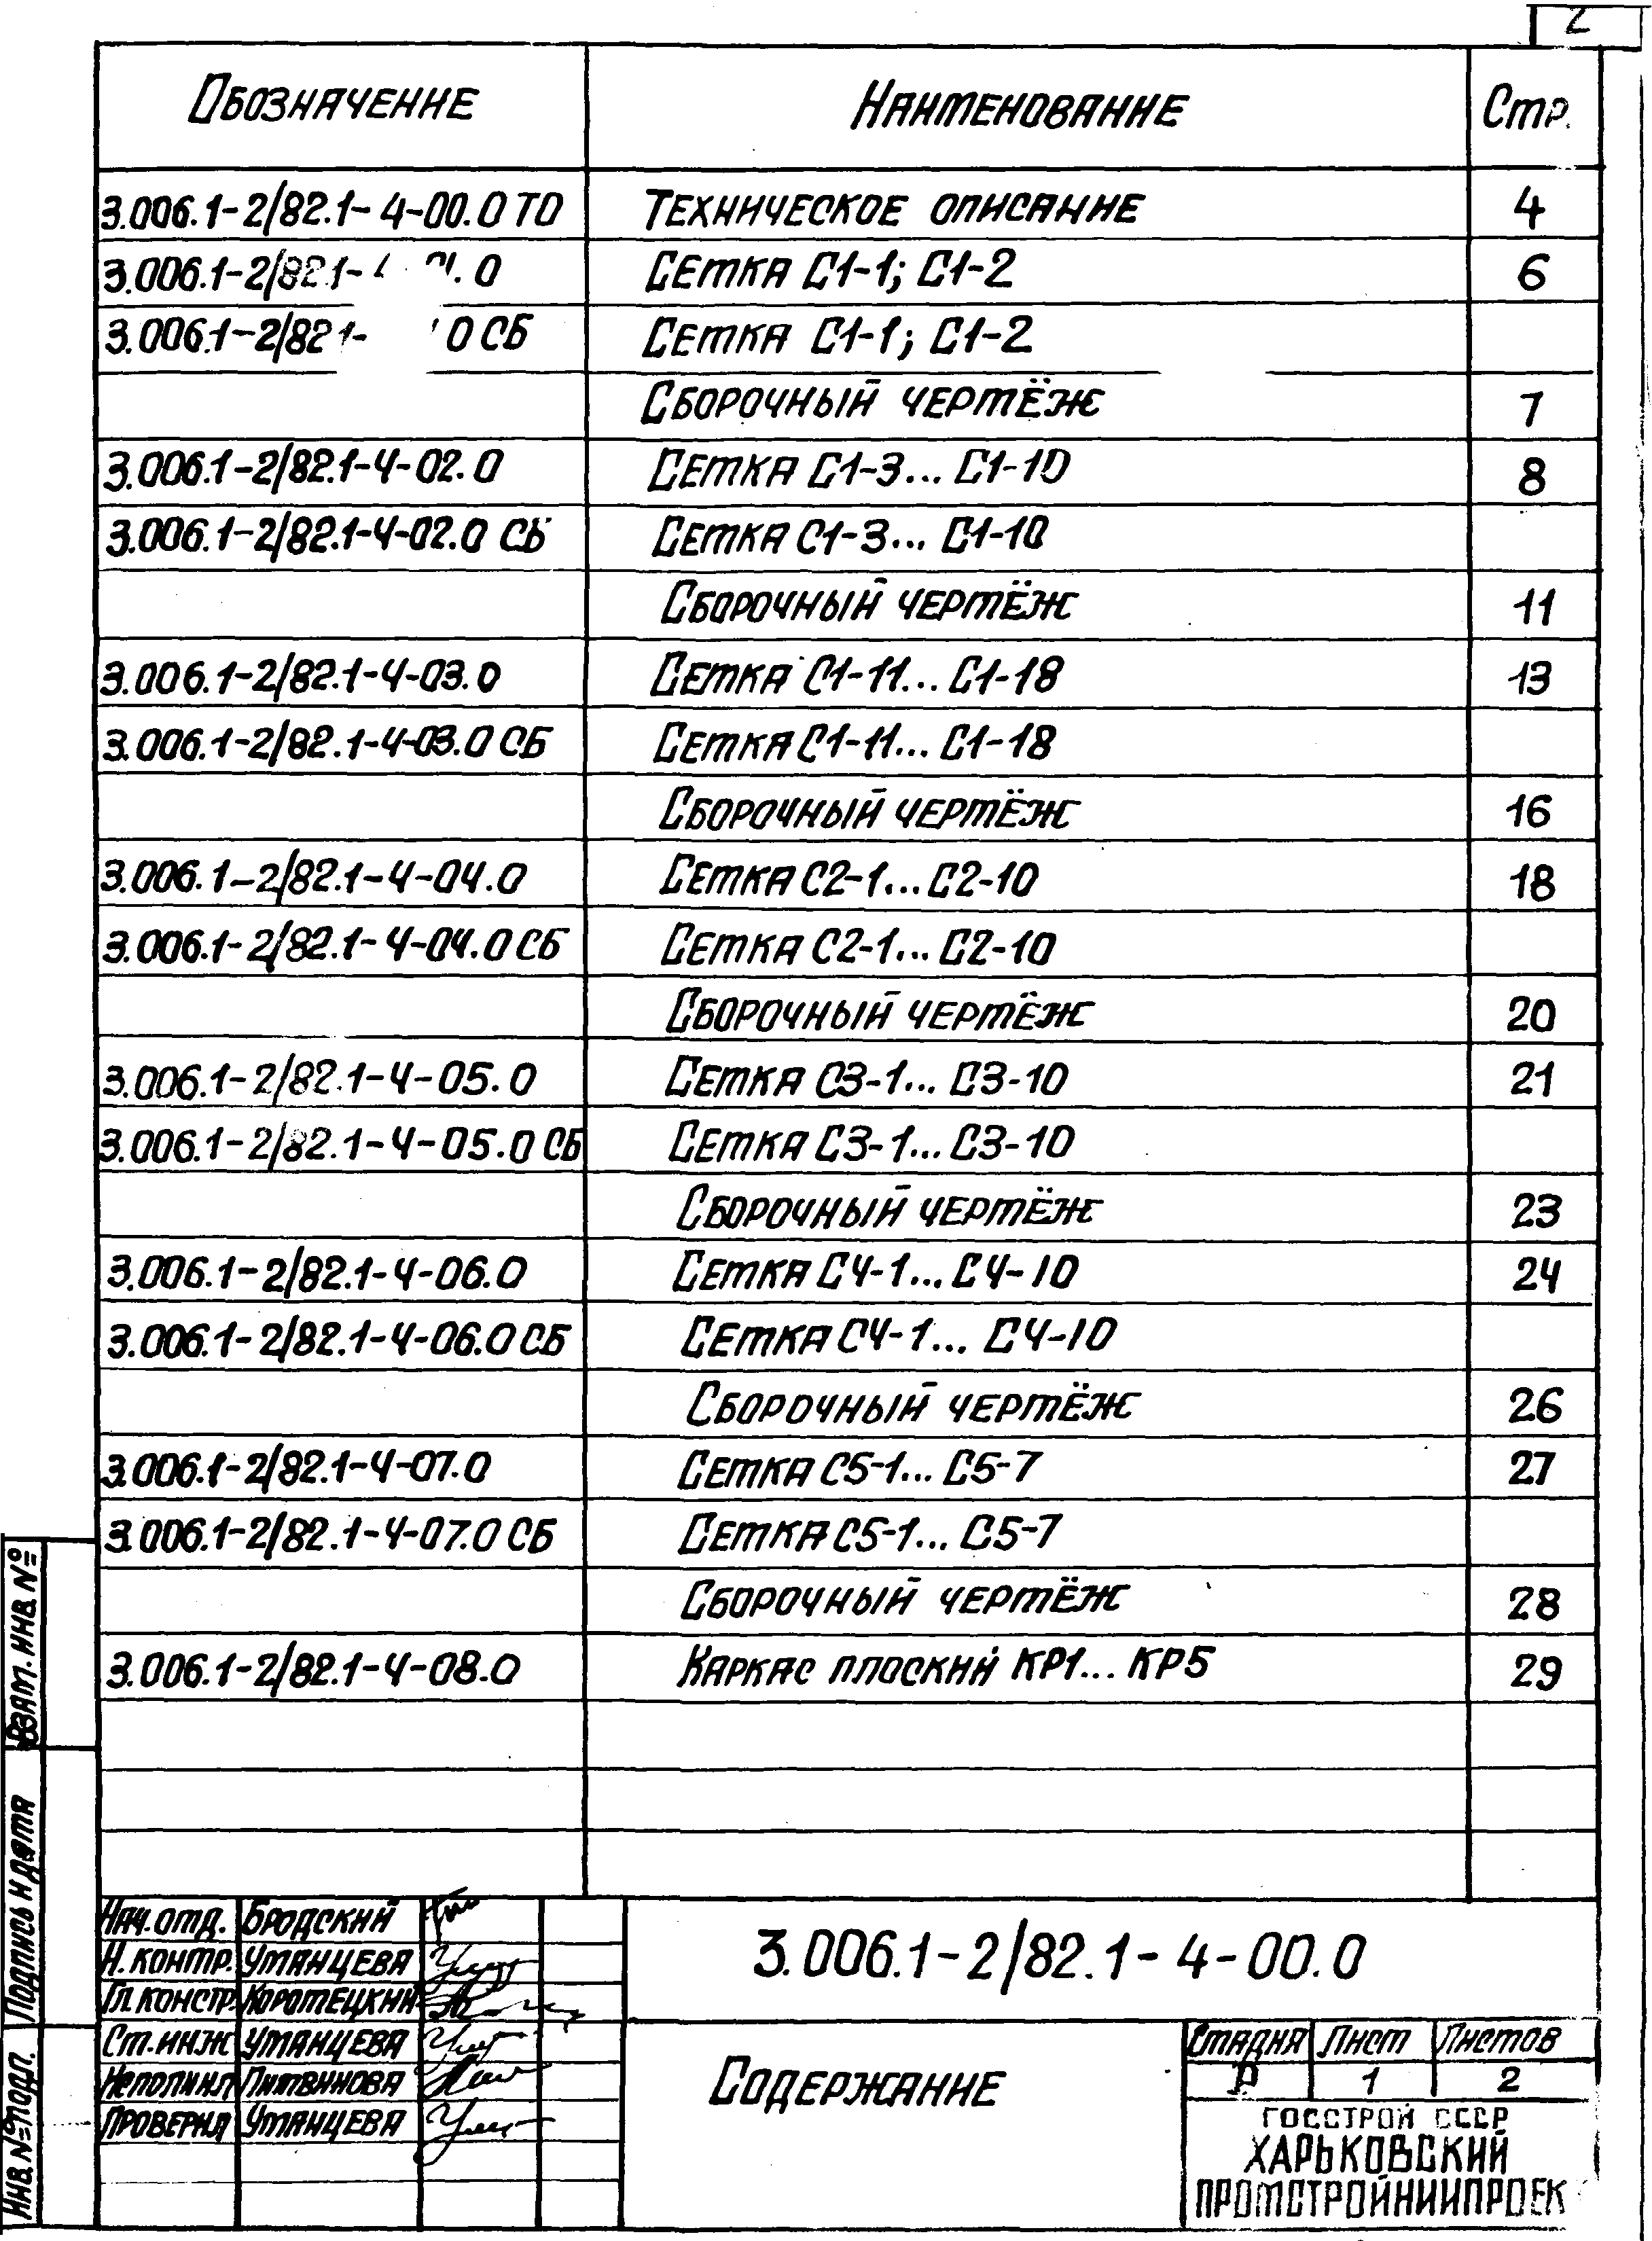 2
Обозначение Наименование Стр.
3.006.1-2/82.1-4-00.0 ТО Техническое описание 4
3.006.1-2/82.1- .0 Сетка С1-1; С1-2 6
3.006.1-2/82 1- 0 СБ Сетка С1-1; С1-2
Сборочный чертёж 7
3.006.1-2/82.1-4-02.0 Сетка С1-3... С1-10 8
3.006.1-2/82.1-4-02.0 СБ Сетка С1-3... С1-10
Сборочный чертёж 11
3.006.1-2/82.1-4-03.0 Сетка С1-11... С1-18 13
3.006.1-2/82.1-4-03.0 СБ Сетка С1-11... С1-18
Сборочный чертёж 16
3.006.1-2/82.1-4-04.0 Сетка С2-1... С2-10 18
3.006.1-2/82.1-4-04.0 СБ Сетка С2-1... С2-10
Сборочный чертёж 20
3.006.1-2/82.1-4-05.0 Сетка С3-1... С3-10 21
3.006.1-2/82.1-4-05.0 СБ Сетка С3-1... С3-10
Сборочный чертёж 23
3.006.1-2/82.1-4-06.0 Сетка С4-1... С4-10 24
3.006.1-2/82.1-4-06.0 СБ Сетка С4-1... С4-10
Сборочный чертёж 26
3.006.1-2/82.1-4-07.0 Сетка С5-1... С5-7 27
3.006.1-2/82.1-4-07.0 СБ Сетка С5-1... С5-7
Сборочный чертёж 28
3.006.1-2/82.1-4-08.0 Каркас плоский КР1... КР5 29
Взам. инв. №
Подпись и дата
Инв. № подл.
Нач. отд. Бродский
Н. контр. Уманцева
Гл. констр. Коротецкий
Ст. инж Уманцева
Исполнил Литвинова
Проверил Уманцева
3.006.1-2/82.1-4-00.0
Содержание
Стадия Лист Листов
Р 1 2
ГОССТРОЙ СССР
ХАРЬКОВСКИЙ
ПРОМСТРОЙНИИПРОЕК